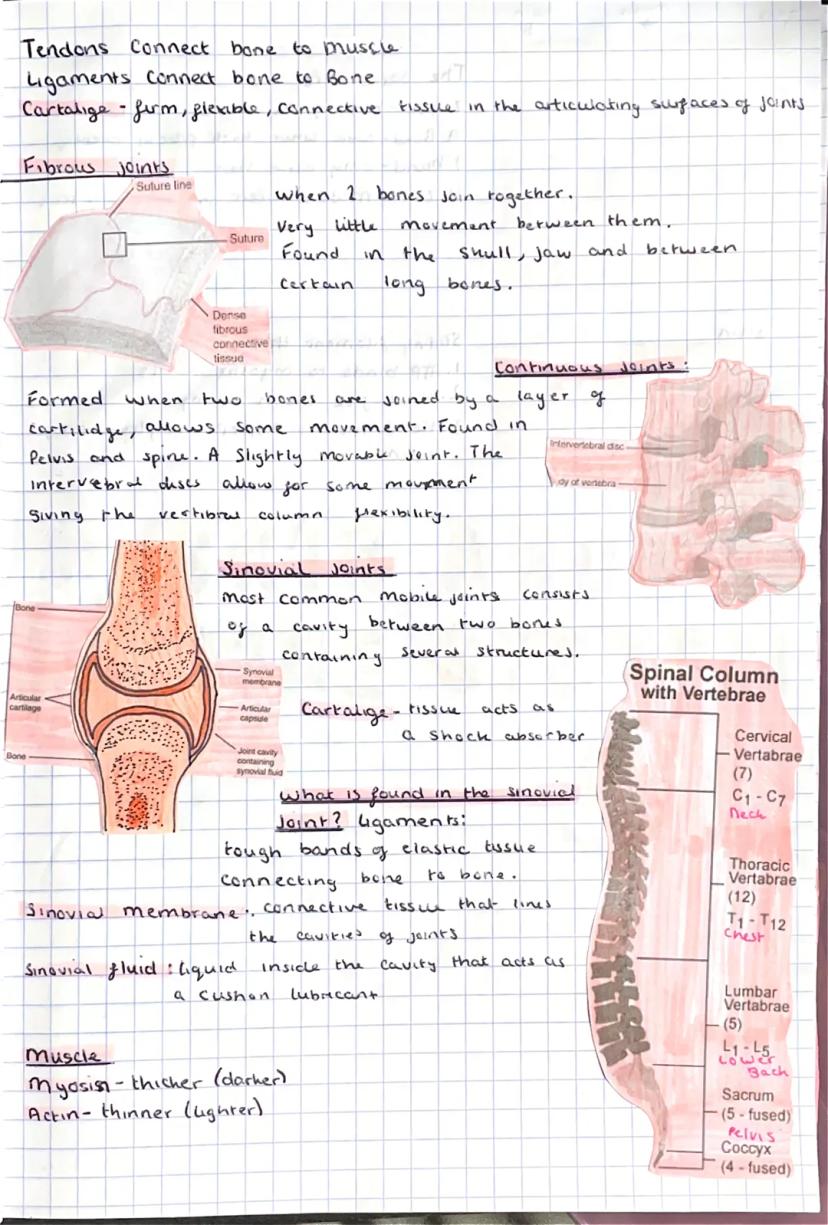 Tendons Connect bone to muscle
Ligaments Connect bone to Bone
Cartalige - firm, flexible, connective tissue in the articulating surfaces of joints
Fibrous joints
Suture line
Suture
Dense
fibrous
connective
tissue
When 2 bones join together.
Very little movement between them.
Found in the skull, jaw and between
certain long bones.
Continuous Joints:
Formed when two bones are joined by a layer of
cartilidge, allows some movement. Found in
Pelvis and spine. A slightly movable joint. The
intervebral discs allow for some movment
giving the vertibral column flexibility.
Intervertebral disc
dy of vertebra
Sinovial joints
Most common mobile joints consists
of a cavity between two bones
containing several structures.
Bone
Articular
cartilage
Bone
Synovial
membrane
Articular
capsule
Joint cavity
containing
synovial fluid
Cartalige - tissue acts as
a shock absorber
What is found in the sinovial
joint? Ligaments:
tough bands of elastic tissue
connecting bone to bone.
Sinovial membrane: connective tissue that lines
the cavities of joints
Sinovial fluid: liquid inside the cavity that acts as
a cushon lubricant
Muscle
Myosin - thicker (darker)
Actin - thinner (lighter)
Spinal Column
with Vertebrae
Cervical
Vertabrae
(7)
C1 - C7
Neck
Thoracic
Vertabrae
(12)
T1 - T12
Chest
Lumbar
Vertabrae
(5)
L1 - L5
Lower
Back
Sacrum
(5 - fused)
Pelvis
Coccyx
(4 - fused)